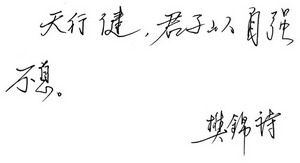 天行健，君子以自强
不息。
樊錦诗